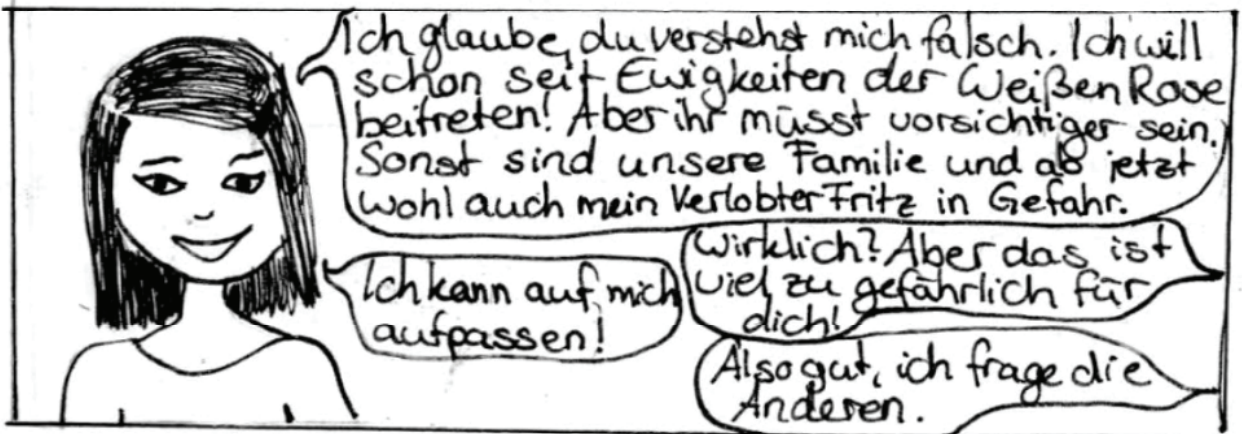 Ich glaube, du verstehst mich falsch. Ich will
schon seit Ewigkeiten der Weißen Rose
beitreten! Aber ihr müsst vorsichtiger sein.
Sonst sind unsere Familie und ab jetzt
wohl auch mein Verlobter Fritz in Gefahr.
Wirklich? Aber das ist
viel zu gefährlich für
dich!
Ich kann auf mich
aufpassen!
Also gut, ich frage die
Anderen.